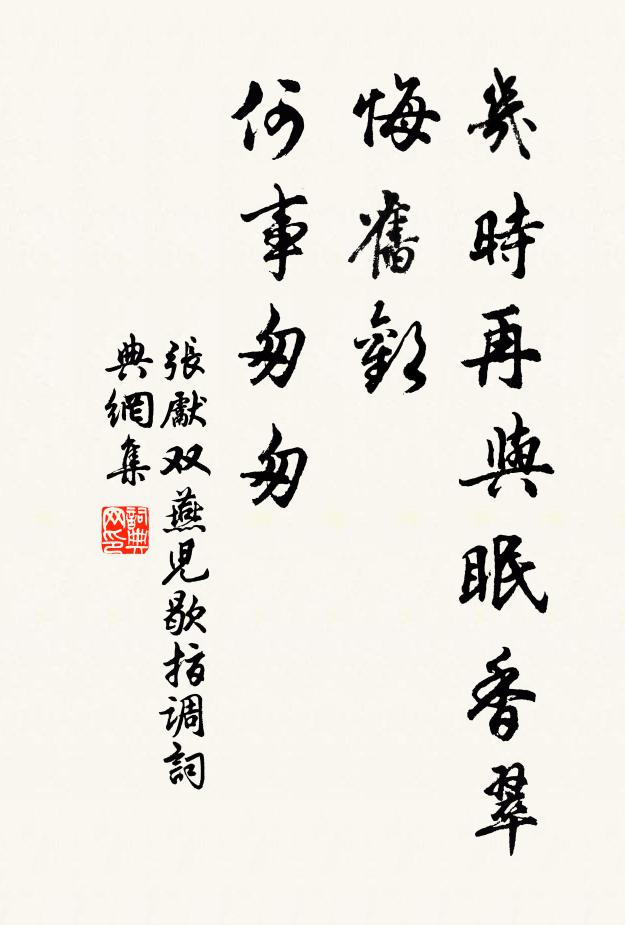 幾時再與眠香翠
悔舊歡
何事匆匆
張獻双燕兒歇指調詞
典網集
詞典網印